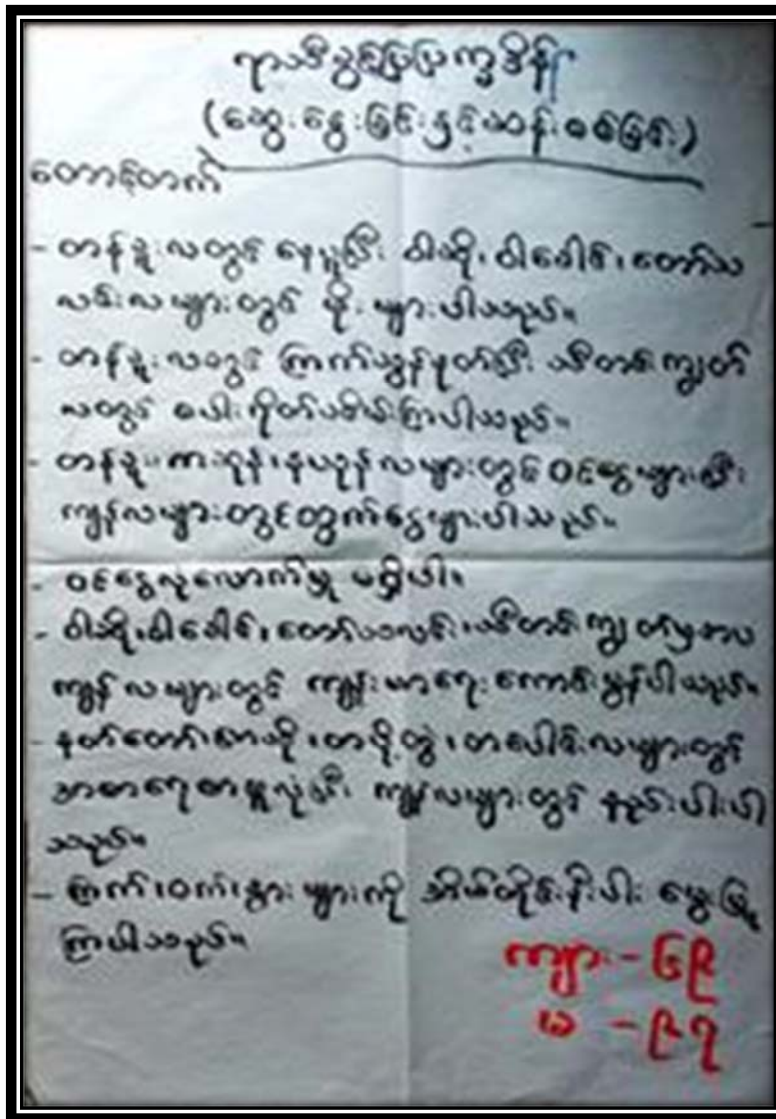 ရာသီခွင်ပြပြက္ခဒိန်
(ဆွေးနွေးခြင်းနှင့်ဆန်းစစ်ခြင်း)
တောင်တက်
- တန်ခူးလတွင် နေပူပြီး ဝါဆို၊ ဝါခေါင်၊ တော်သ
လင်းလများတွင် မိုးများပါသည်။
- တန်ခူးလတွင် ကြက်သွန်နုတ်ပြီး သီတင်းကျွတ်
လတွင် စပါးရိတ်သိမ်းကြပါသည်။
- တန်ခူး၊ ကဆုန်၊ နယုန်လများတွင် ဝင်ငွေများပြီး
ကျန်လများတွင်ထွက်ငွေများပါသည်။
- ဝင်ငွေလုံလောက်မှု မရှိပါ။
- ဝါဆို၊ ဝါခေါင်၊ တော်သလင်း၊ သီတင်းကျွတ်မှအပ
ကျန်လများတွင် ကျန်းမာရေးကောင်းမွန်ပါသည်။
- နတ်တော်၊ ပြာသို၊ တပို့တွဲ၊ တပေါင်းလများတွင်
အစာရေစာဖူလုံပြီး ကျန်လများတွင် နည်းပါးပါ
သည်။
- ကြက်၊ ဝက်၊ နွားများကို အိမ်တိုင်းနီးပါး မွေးမြူ
ကြပါသည်။
ကျား - ၆၉
မ - ၉၇